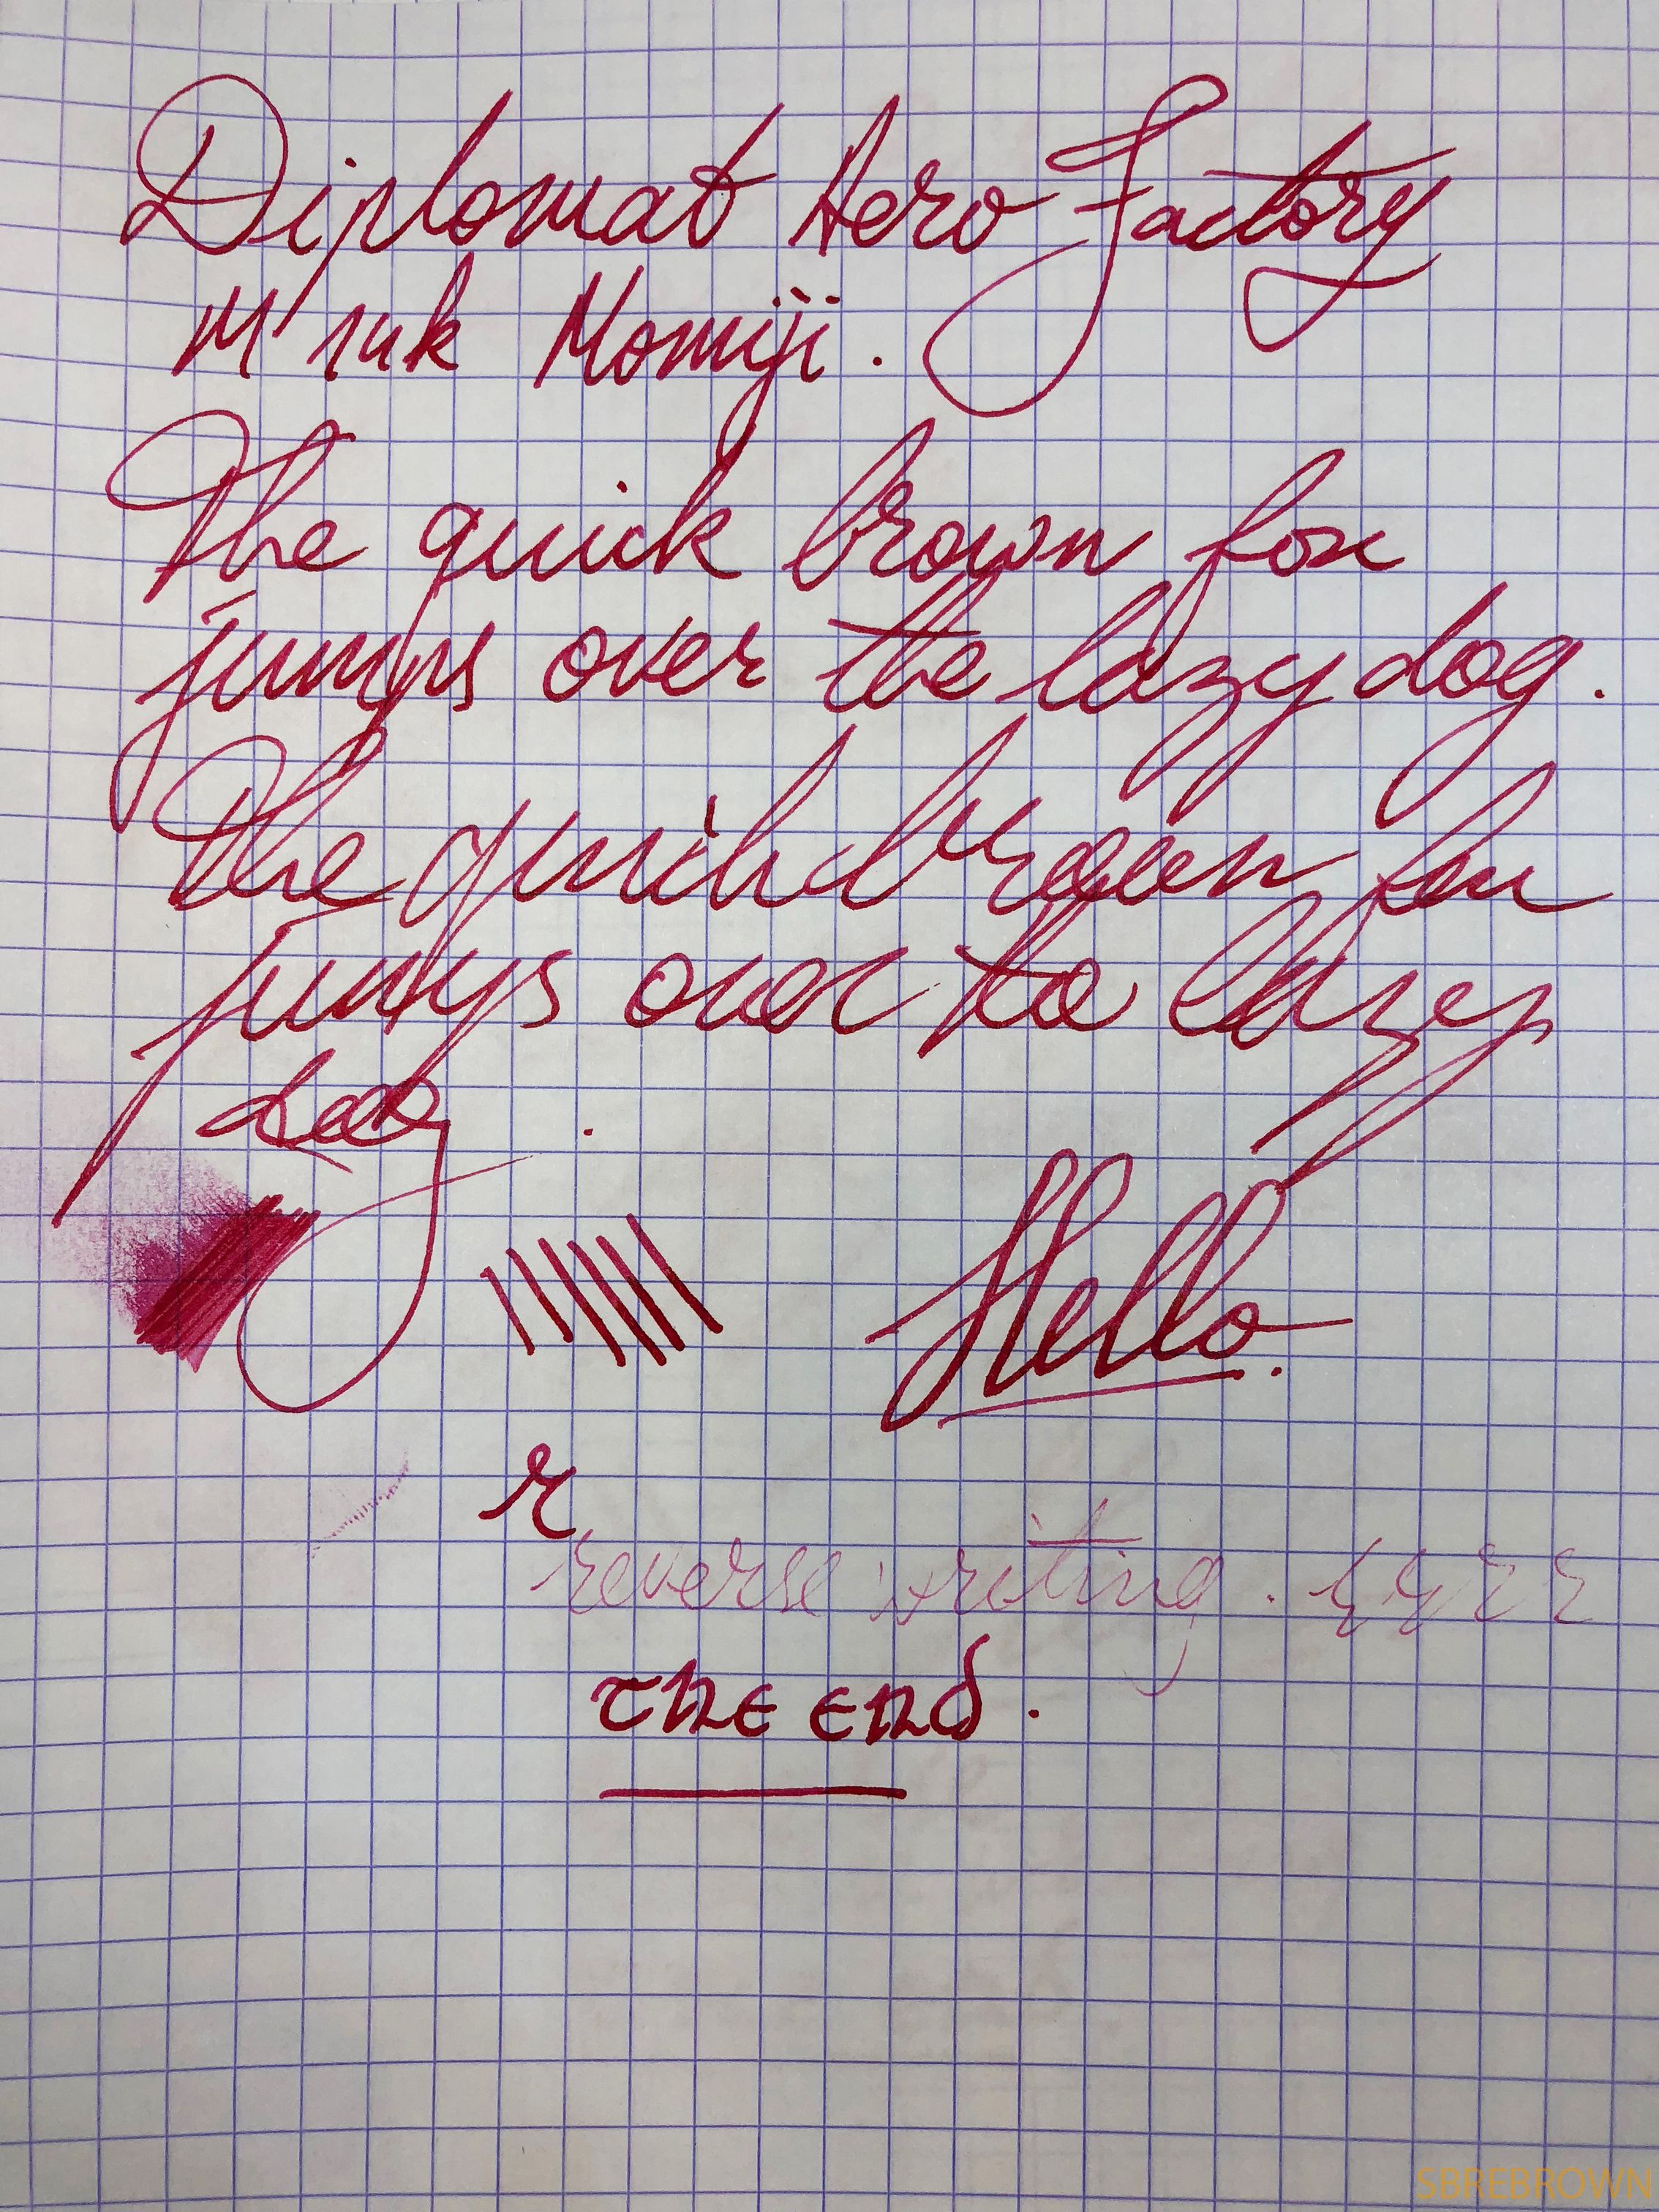 Diplomat Aero Factory
M ink Momiji.
The quick brown fox
jumps over the lazy dog.
The quick brown fox
jumps over the lazy
dog .
Hello.
r
reverse writing.
the end.
SBREBROWN